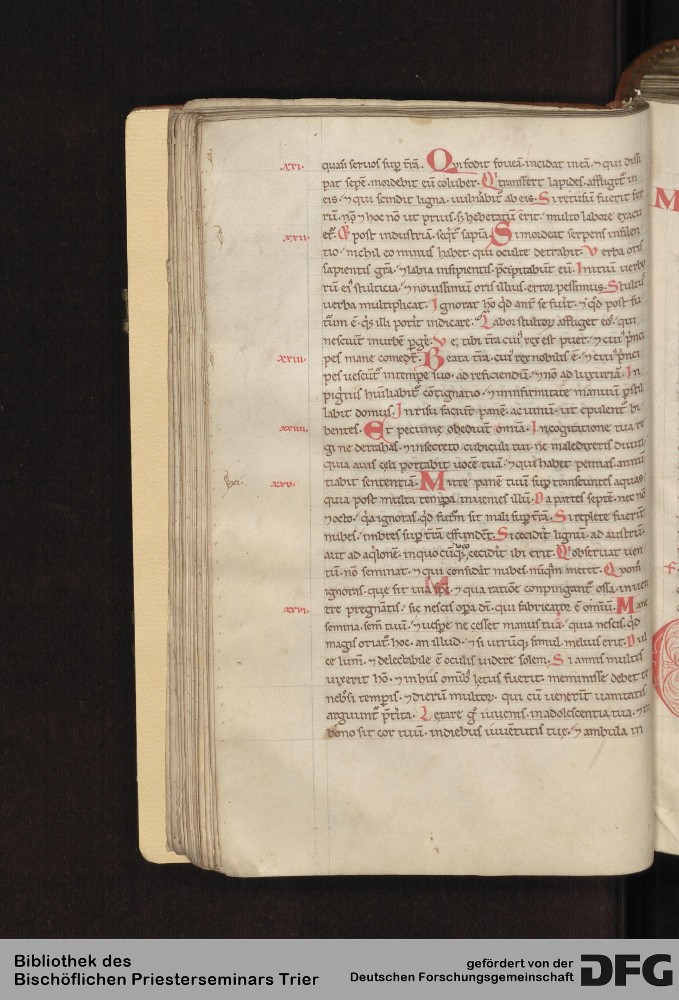 xxi. quasi seruos sup t̄rā. Qui fodit foueā· incidat in eā. ⁊ qui dissi
pat sepē· mordebit eū coluber. Q' transfert lapides· affliget᷑ in
eis· ⁊ qui scindit ligna· uulnābit᷑ ab eis. Si retusū fuerit fer
rū· nō
xxii. et᷑. post industriā· seq̄t᷑ sapīa. Si mordeat serpens in silen
tio· nichil eo minus habet· qui oculte detrahit. Verba oris
sapientis gr̄a· ⁊ labia insipientis· p̄cipitabunt eū. Initiū uerbo
rū ei᷒ stulticia· ⁊ nouissimū oris illius· error pessimus. Stult᷒
uerba multiplicat. Ignorat hō qd̄ ant̄ se fuit· ⁊ qd̄ post fu
tur̄um ē· q̄s illi potit indicare. Labor stultoꝝ affliget eos· qui
nesciunt in urbē pgē. Ve tibi t̄ra cui᷒ rex est puer· ⁊ cui᷒ p̄nci
xxiii. pes mane comedt̄. Beata t̄ra· cui᷒ rex nobilis ē· ⁊ cui᷒ p̄nci
pes uescunt᷑ in tempe suo· ad reficiendū· ⁊ nō ad luxuriā. In
pigritiis humiliabit᷑ cōtignatio· ⁊ in infirmitate manuum pstil
labit domus. In risu faciunt panē· ac uinū· ut epulent᷑ bi
xxiiii. bentes. Et pecunię obediunt omīa. In cogitatione tua re
gi ne detrahas· ⁊ in secreto cubiculi tui· ne maledixeris diuiti·
quia aues cęli portabit uocē tuā· ⁊ qui habet pennas· annū
xxv. tiabit sententiā. Mitte panē tuum sup transeuntes aquas·
quia post multa tempa inuenies illū. Da partes septē· nec nō
⁊ octo· q̄a ignoras qd̄ futm̄ sit mali sup t̄rā. Si replete fuerīt
nubes· imbres sup t̄rā effundēt. Si ceciderit lignū· ad austrū·
aut ad aq̄lonē· in quocūq; loco ceciderit ibi erit. Q' obseruat uen
tū· nō seminat· ⁊ qui considat̄ nubes· nūq̄m metit. Quom̄
ignoras· que sit uia spc̄· ⁊ qua ratiōe conpingant᷑ ossa in uen
xxvi. tre pregnātis· sic nescis opa dī· qui fabricator ē omīum. Mane
semina sem̄ tuū· ⁊ uespe ne cesset manus tua· quia nescis· qd̄
magis oriat᷑· hoc· an illud· ⁊ si utrūq; simul· melius erit. Dul
ce lum̄· ⁊ delectabile ē oculis uidere solem. Si annis multis
uixerit hō· ⁊ in hiis omīb᷒ lętus fuerit· meminisse debet te
nebrosi tempis· ⁊ dierum multoꝝ· qui cū uenerīt· uanitatis
arguunt᷑ p̄tita. Letare g° iuuenis· in adolescentia tua· ⁊ in
bono sit cor tuū· in diebus iuuentutis tuę· ⁊ ambula in
Bibliothek des
Bischöflichen Priesterseminars Trier
gefördert von der
Deutschen Forschungsgemeinschaft
DFG